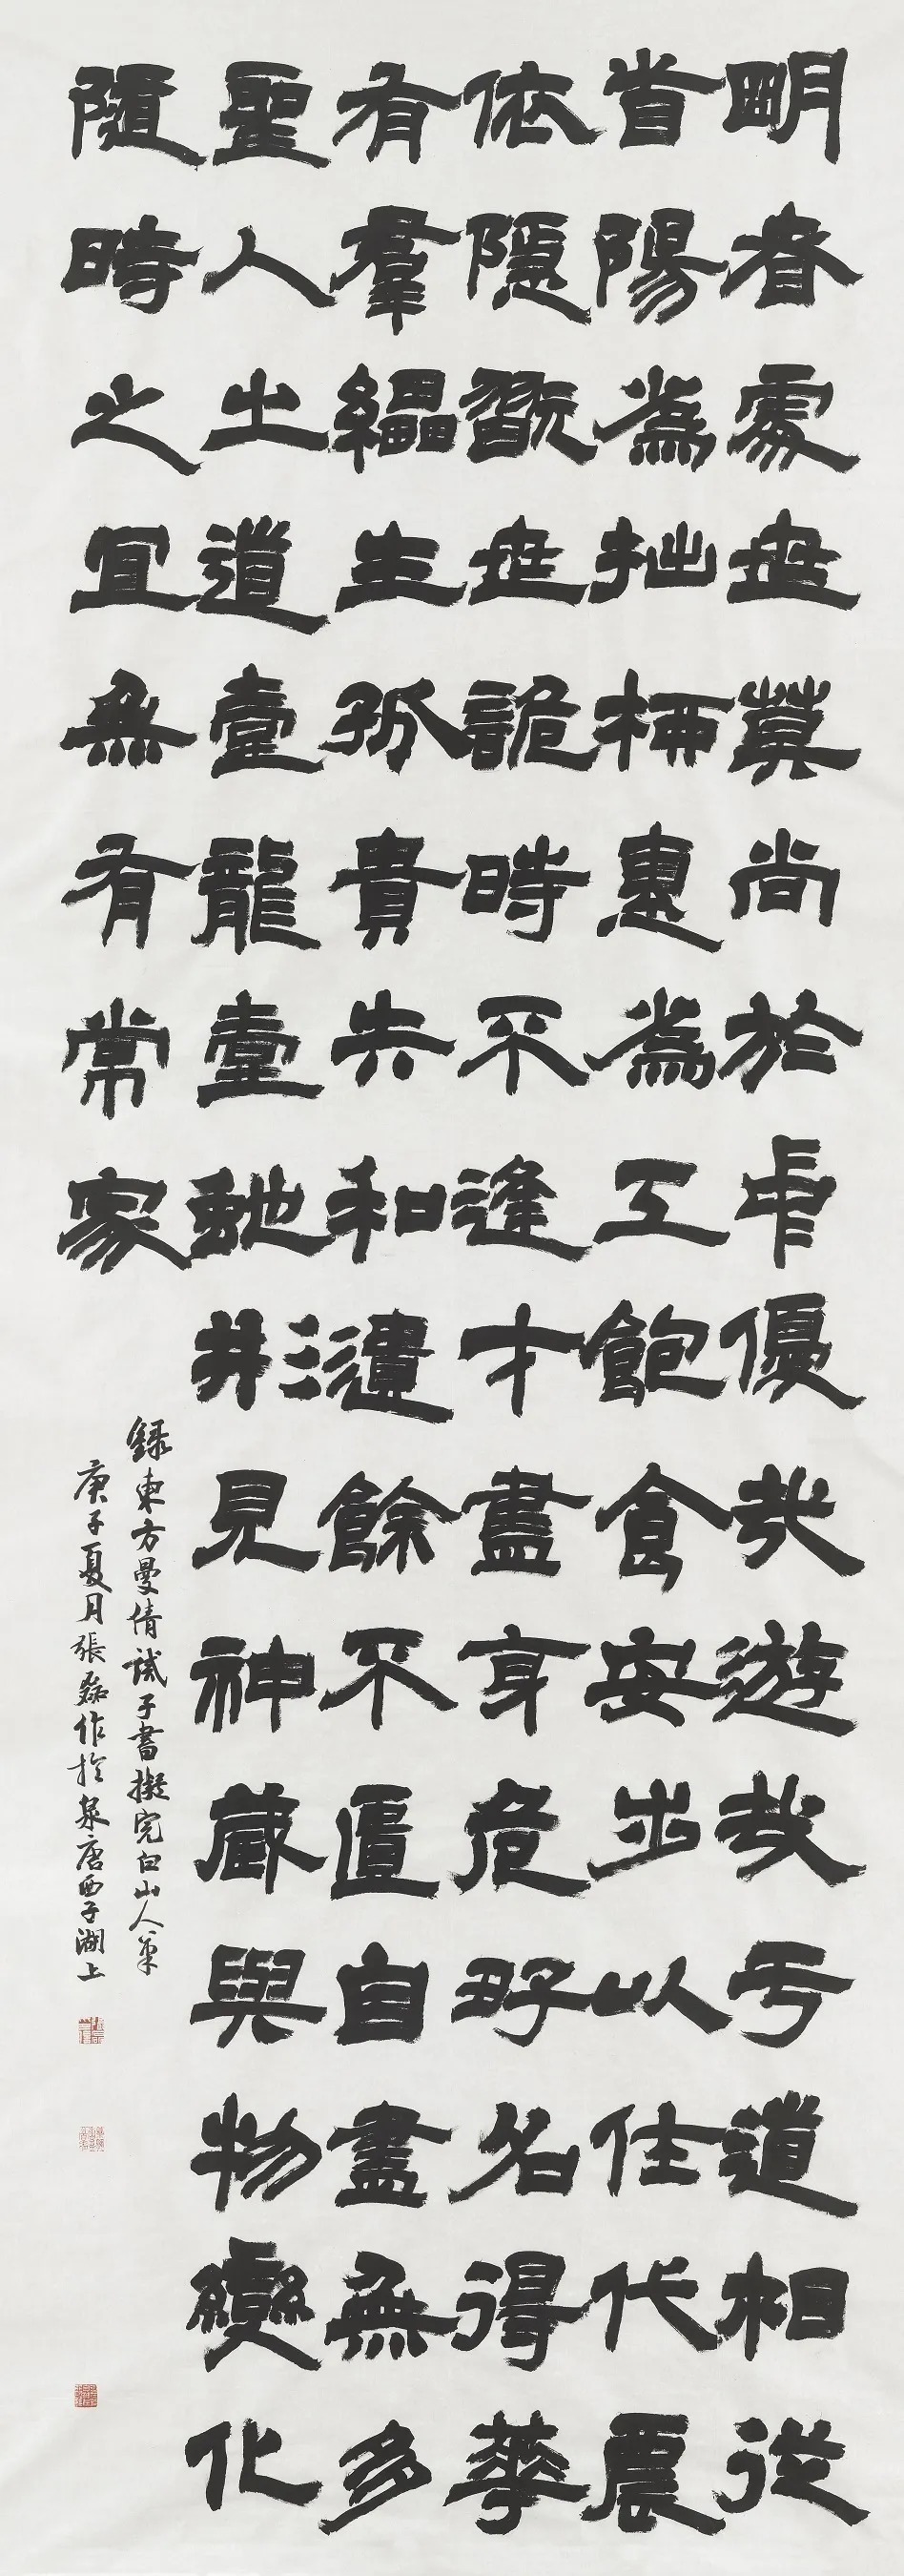 明者處世莫尚於中優哉遊哉亏道相從
首陽為拙柳惠為工飽食安步以仕代農
依隱翫世詭時不逢才盡身危好名得華
有羣纍生孤貴失和遺餘不匱自盡無多
聖人之道壹龍壹虵形見神藏與物變化
隨時之宜無有常家
錄東方曼倩誡子書擬完白山人筆
庚子夏月張作於泉唐西子湖上